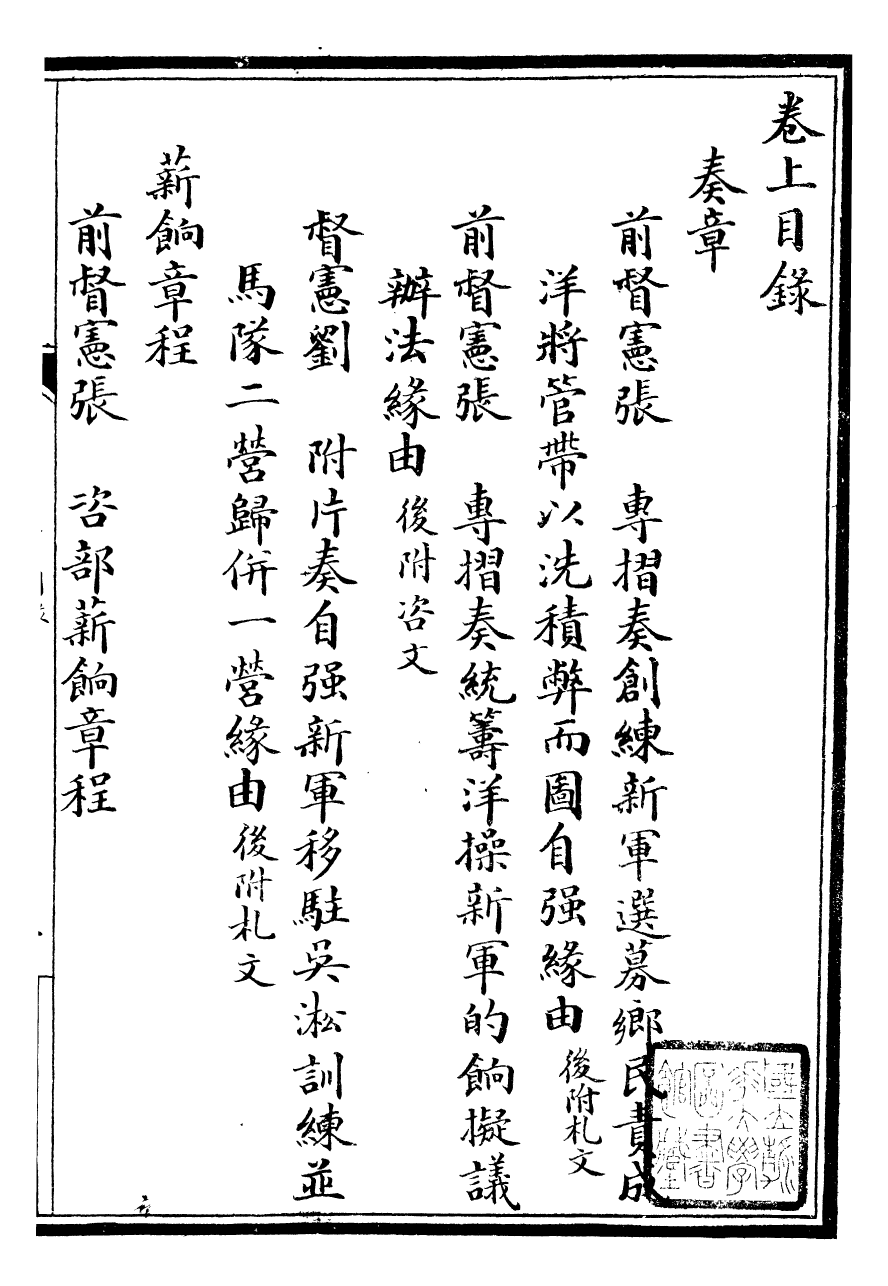 卷上目錄
奏章
前督憲張　專摺奏創練新軍選募鄉民責成
洋將管帶以洗積弊而圖自强緣由後附札文
前督憲張　專摺奏統籌洋操新軍的餉擬議
辦法緣由後附咨文
督憲劉　附片奏自强新軍移駐吳淞訓練並
馬隊二營歸併一營緣由後附札文
薪餉章程
前督憲張　咨部薪餉章程